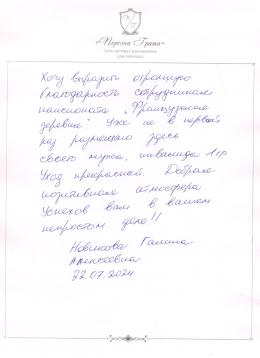 «Персона Грата»
Сеть частных пансионатов
для пожилых
Хочу выразить огромную
благодарность сотрудникам
пансионата „Французская
деревня“ Уже не в первый
раз размещаю здесь
своего мужа, инвалида 1 гр
Уход прекрасный. Добрая
позитивная атмосфера
Успехов вам в вашем
непростом деле!!
Новикова Галина
Алексеевна
22.07.2024